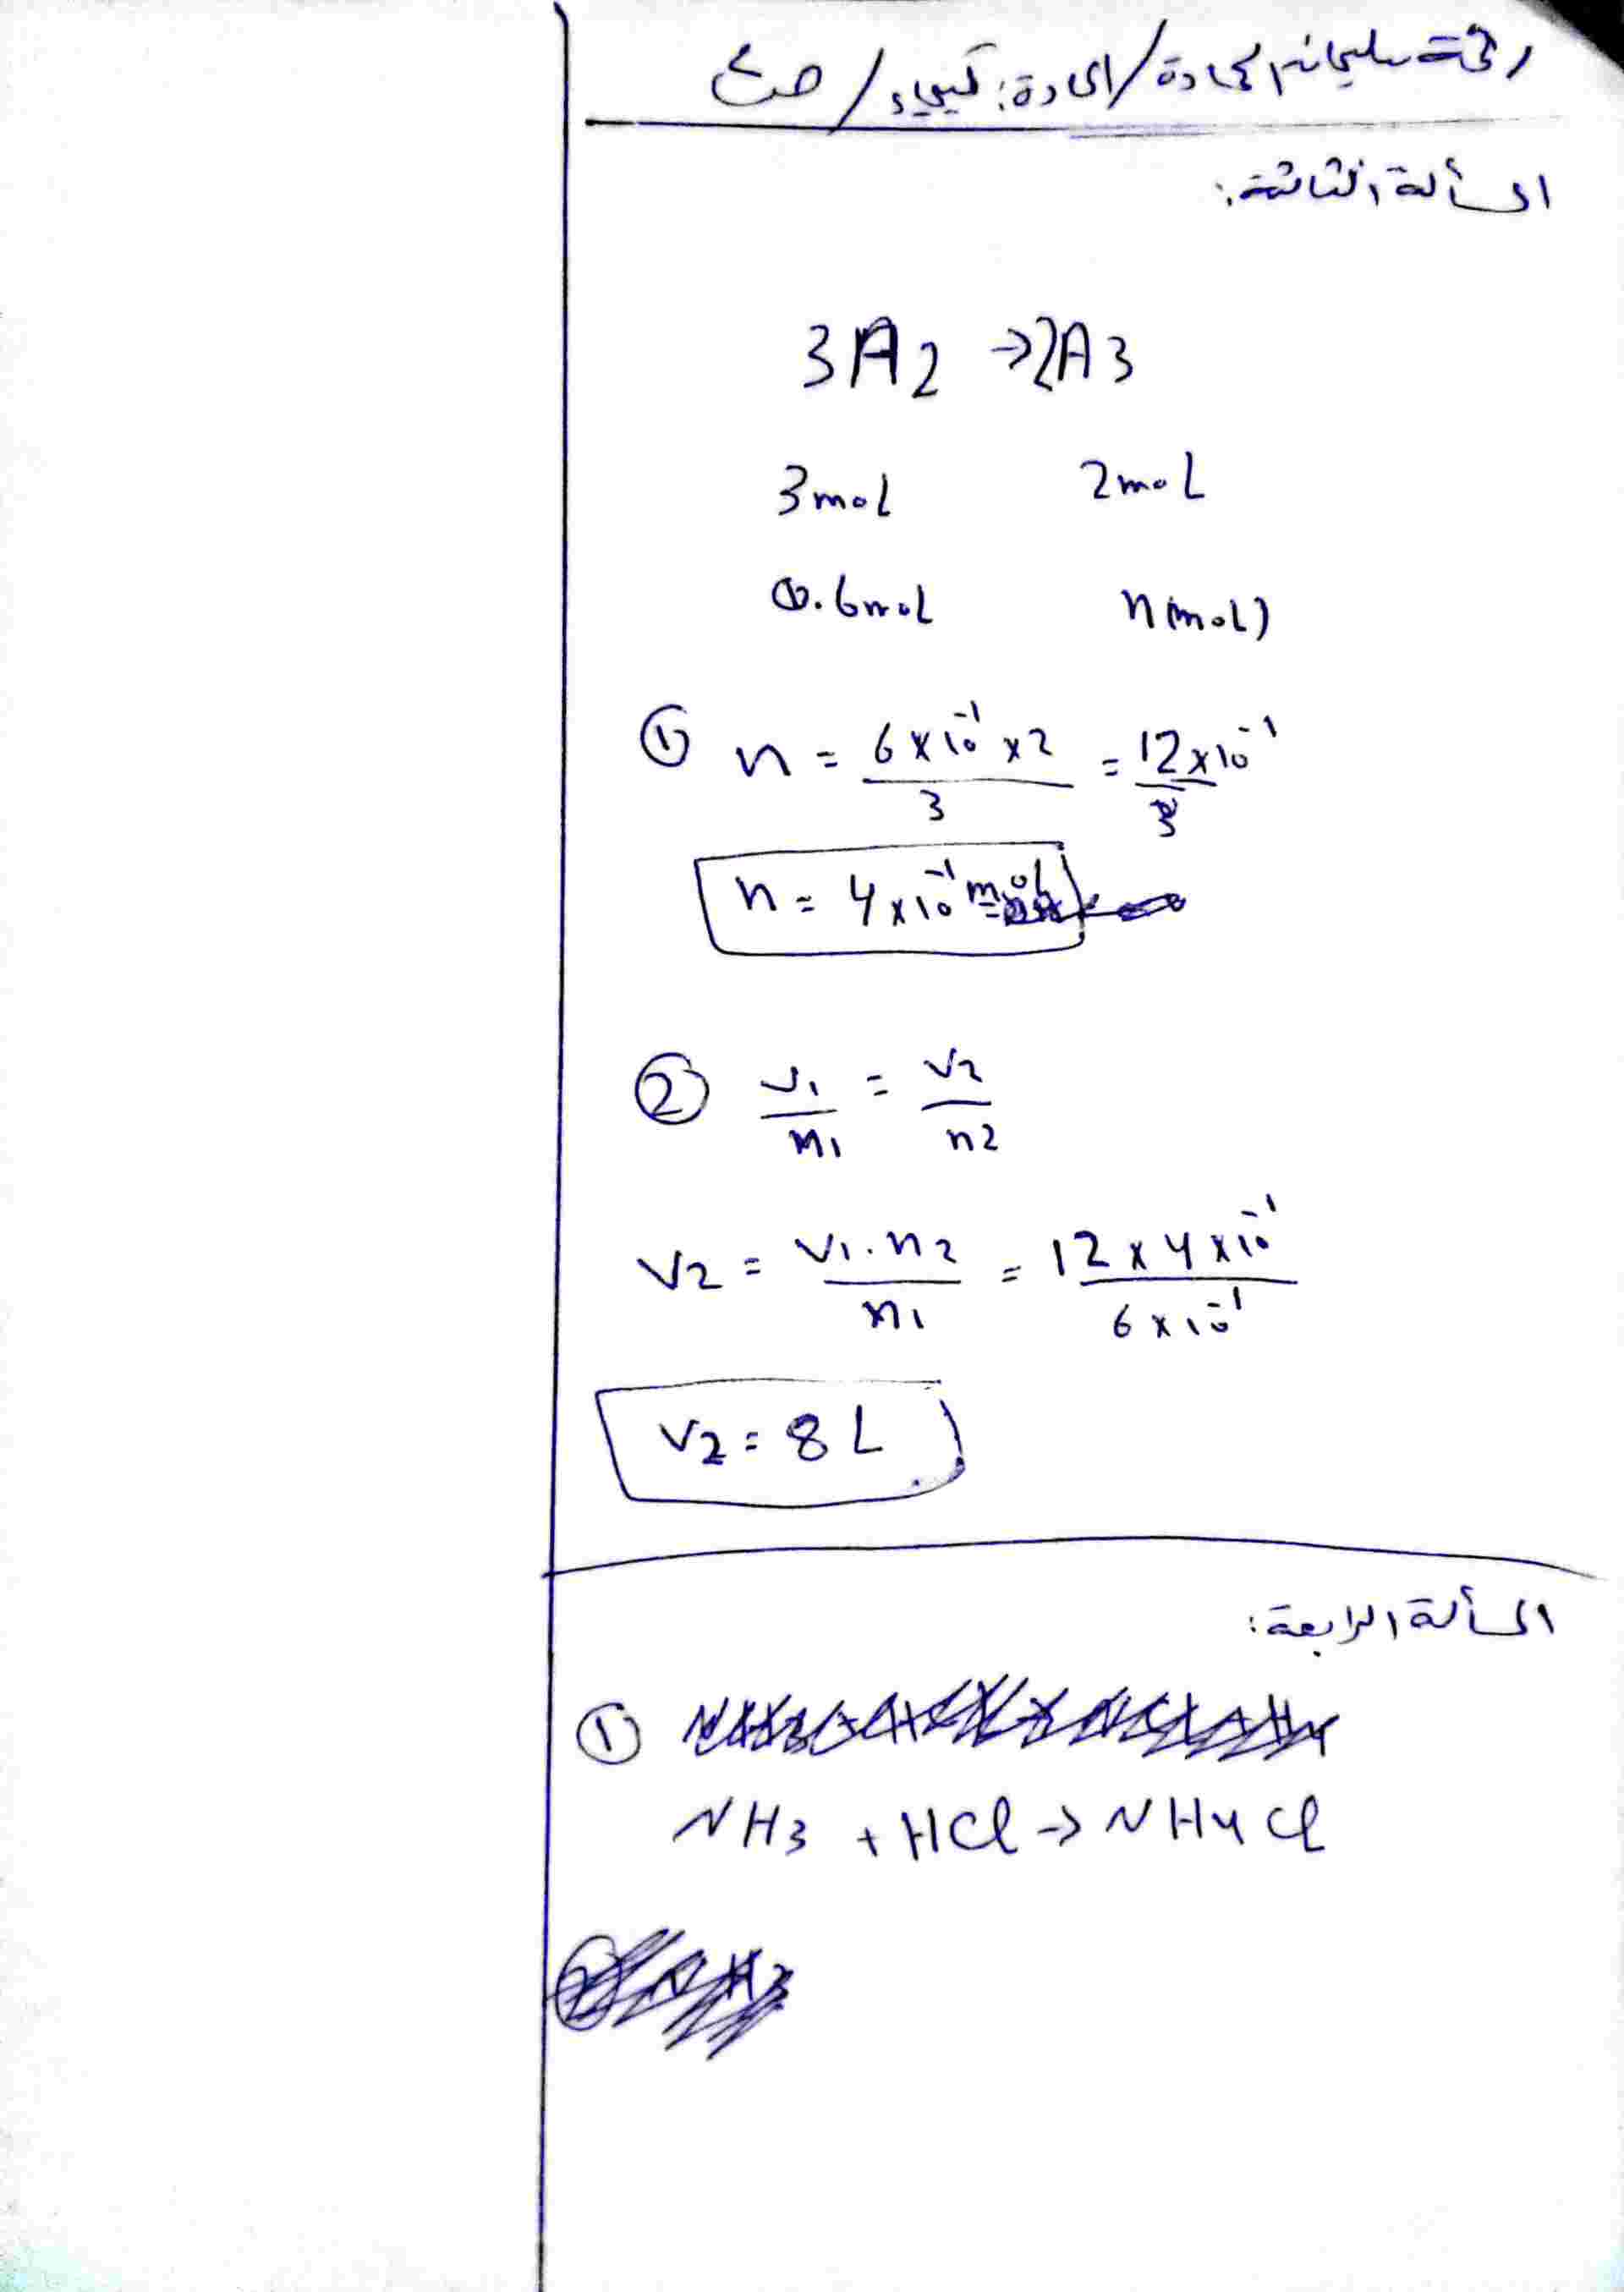 المادة: كيمياء / ص٤
المسألة الثالثة:
3A2 → 2A3
3mol 2mol
0.6mol n(mol)
① n = 6×10⁻¹×2 / 3 = 12×10⁻¹ / 3
n = 4×10⁻¹ mol
② V1 / n1 = V2 / n2
V2 = V1.n2 / n1 = 12×4×10⁻¹ / 6×10⁻¹
V2 = 8 L
المسألة الرابعة:
①
NH3 + HCl → NH4Cl